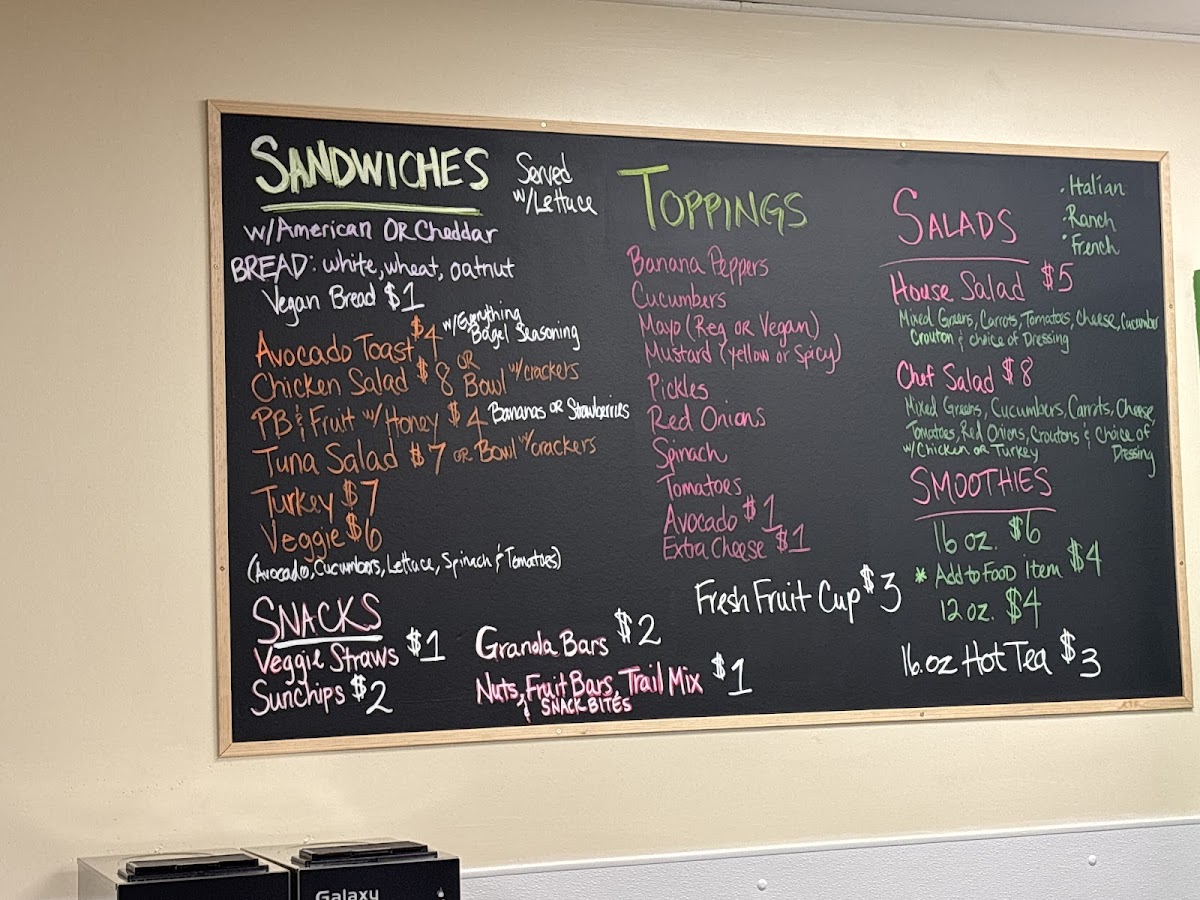 SANDWICHES
Served
w/Lettuce
w/American OR Cheddar
BREAD: white, wheat, oatnut
Vegan Bread $1
Avocado Toast $4 w/Everything
Bagel Seasoning
Chicken Salad $8 OR Bowl w/crackers
PB & Fruit w/ Honey $4 Bananas OR Strawberries
Tuna Salad $7 OR Bowl w/crackers
Turkey $7
Veggie $6
(Avocado, Cucumbers, Lettuce, Spinach & Tomatoes)
SNACKS
Veggie Straws $1
Sunchips $2
Granola Bars $2
Nuts, Fruit Bars, Trail Mix $1
& SNACK BITES
TOPPINGS
Banana Peppers
Cucumbers
Mayo (Reg OR Vegan)
Mustard (Yellow or Spicy)
Pickles
Red Onions
Spinach
Tomatoes
Avocado $1
Extra Cheese $1
Fresh Fruit Cup $3
SALADS
· Italian
· Ranch
· French
House Salad $5
Mixed Greens, Carrots, Tomatoes, Cheese, Cucumber
Crouton & choice of Dressing
Chef Salad $8
Mixed Greens, Cucumbers, Carrots, Cheese,
Tomatoes, Red Onions, Croutons & Choice of
Dressing
w/ Chicken OR Turkey
SMOOTHIES
16 oz. $6
* Add to Food Item $4
12 oz. $4
16.oz Hot Tea $3
Galaxy